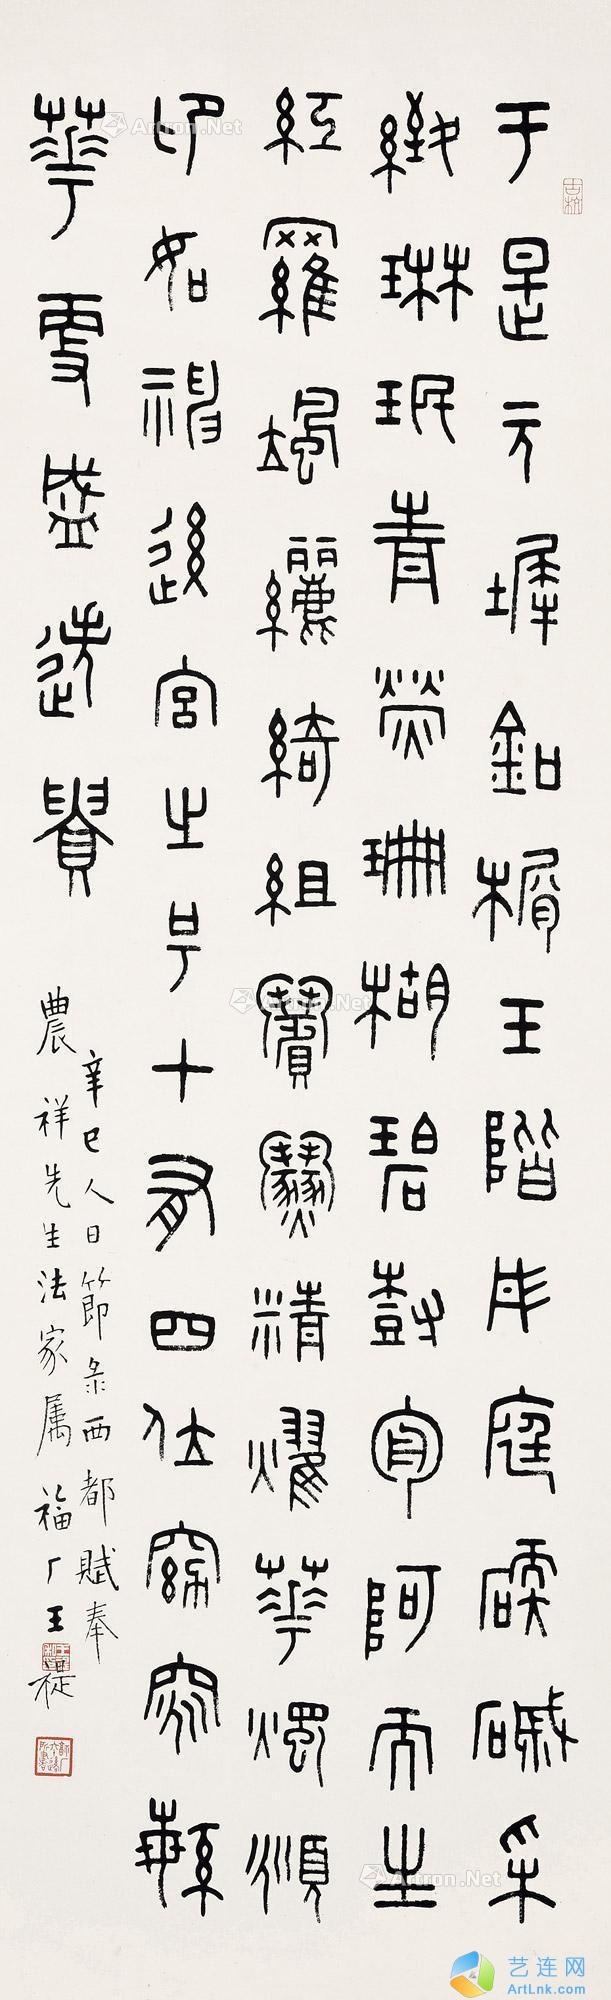 于是玄墀釦榍玉階彤庭碝磩采
緻琳珉青熒珊瑚碧尌周阿而生
紅羅颯纚綺組繽紛精燿華燭頫
卬如神後宮之号十有四位窈窕緐
華更盛迭貴
辛巳人日節彔西都賦奉
農祥先生法家属 福厂王禔
古杭
Artron.Net
Artron.Net
Artron.Net
Artron.Net
艺连网
ArtLnk.com